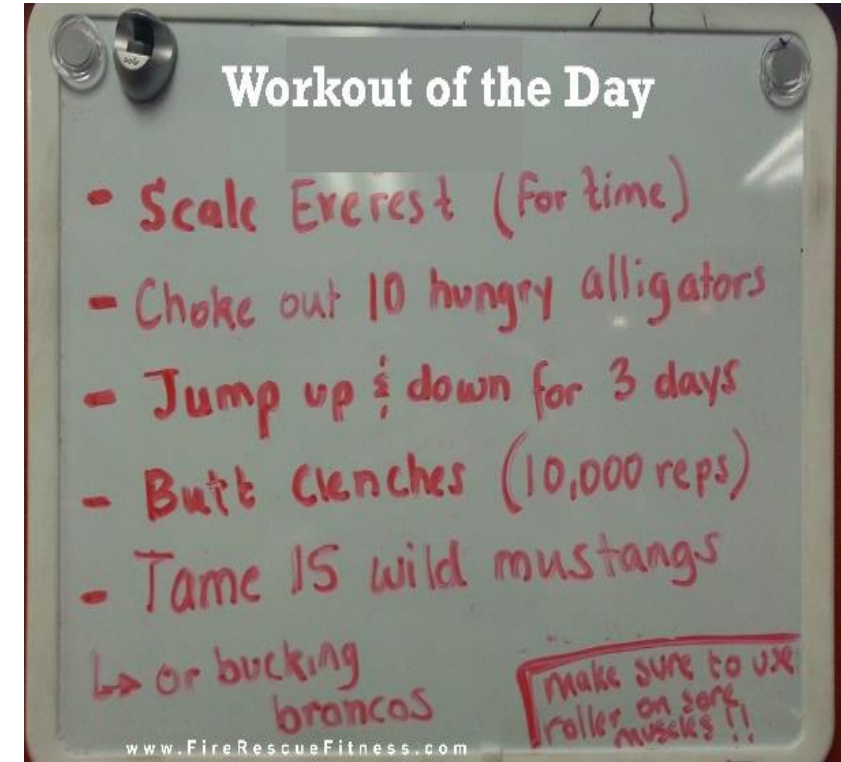 Workout of the Day
- Scale Everest (for time)
- Choke out 10 hungry alligators
- Jump up & down for 3 days
- Butt Clenches (10,000 reps)
- Tame 15 wild mustangs
↳ or bucking
broncos
make sure to use
roller on sore
muscles !!
www.FireRescueFitness.com